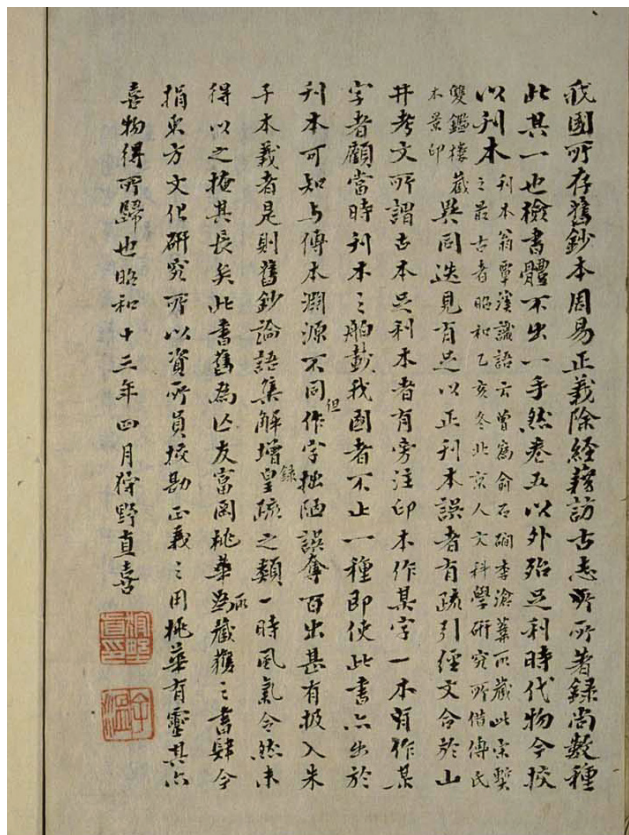 我國所存舊鈔本周易正義除經籍訪古志所著錄尚數種
此其一也檢書體不出一手然卷五以外殆足利時代物今校
以刊本
刊本翁覃溪識語云曾為俞石磵李滄葦所藏此宋槧
之最古者昭和乙亥冬北京人文科學研究所借傅氏
雙鑑樓藏
本景印
異同迭見有足以正刊本誤者有疏引經文合於山
井考文所謂古本足利本者有旁注印本作某字一本有作某
字者顧當時刊本之舶載我國者不止一種即使此書亦出於
刊本可知与傳本淵源不同但作字拙陋誤奪百出甚有扱入朱
子本義者是則舊鈔論語集解增錄皇疏之類一時風氣令然未
得以之掩其長矣此書舊為亡友富岡桃華所藏獲之書肆今
捐東方文化研究所以資所員校勘正義之用桃華有靈其亦
喜物得所歸也昭和十三年四月狩野直喜
狩野
直喜
子溫